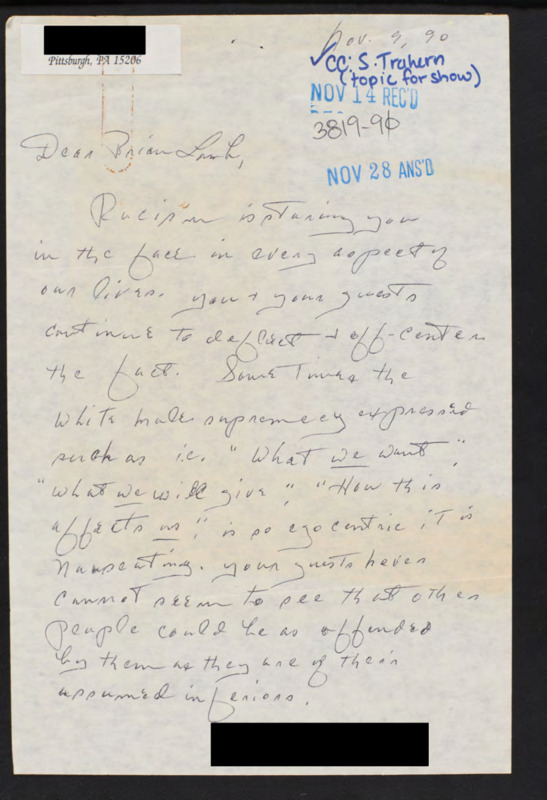 Pittsburgh, PA 15206
Nov. 9, 90
✓CC: S. Trahern
(topic for show)
NOV 14 REC'D
3819-90
NOV 28 ANS'D
Dear Brian Lamb,
Racism is staring you
in the face in every aspect of
our lives. you + your guests
continue to deflect + off-center
the fact. Sometimes the
white male supremecy expressed
such as ie. "What we want",
"what we will give", "How this
affects us", is so egocentric it is
nauseating. your guests
cannot seem to see that other
people could be as offended
by them as they are of their
assumed inferiors.